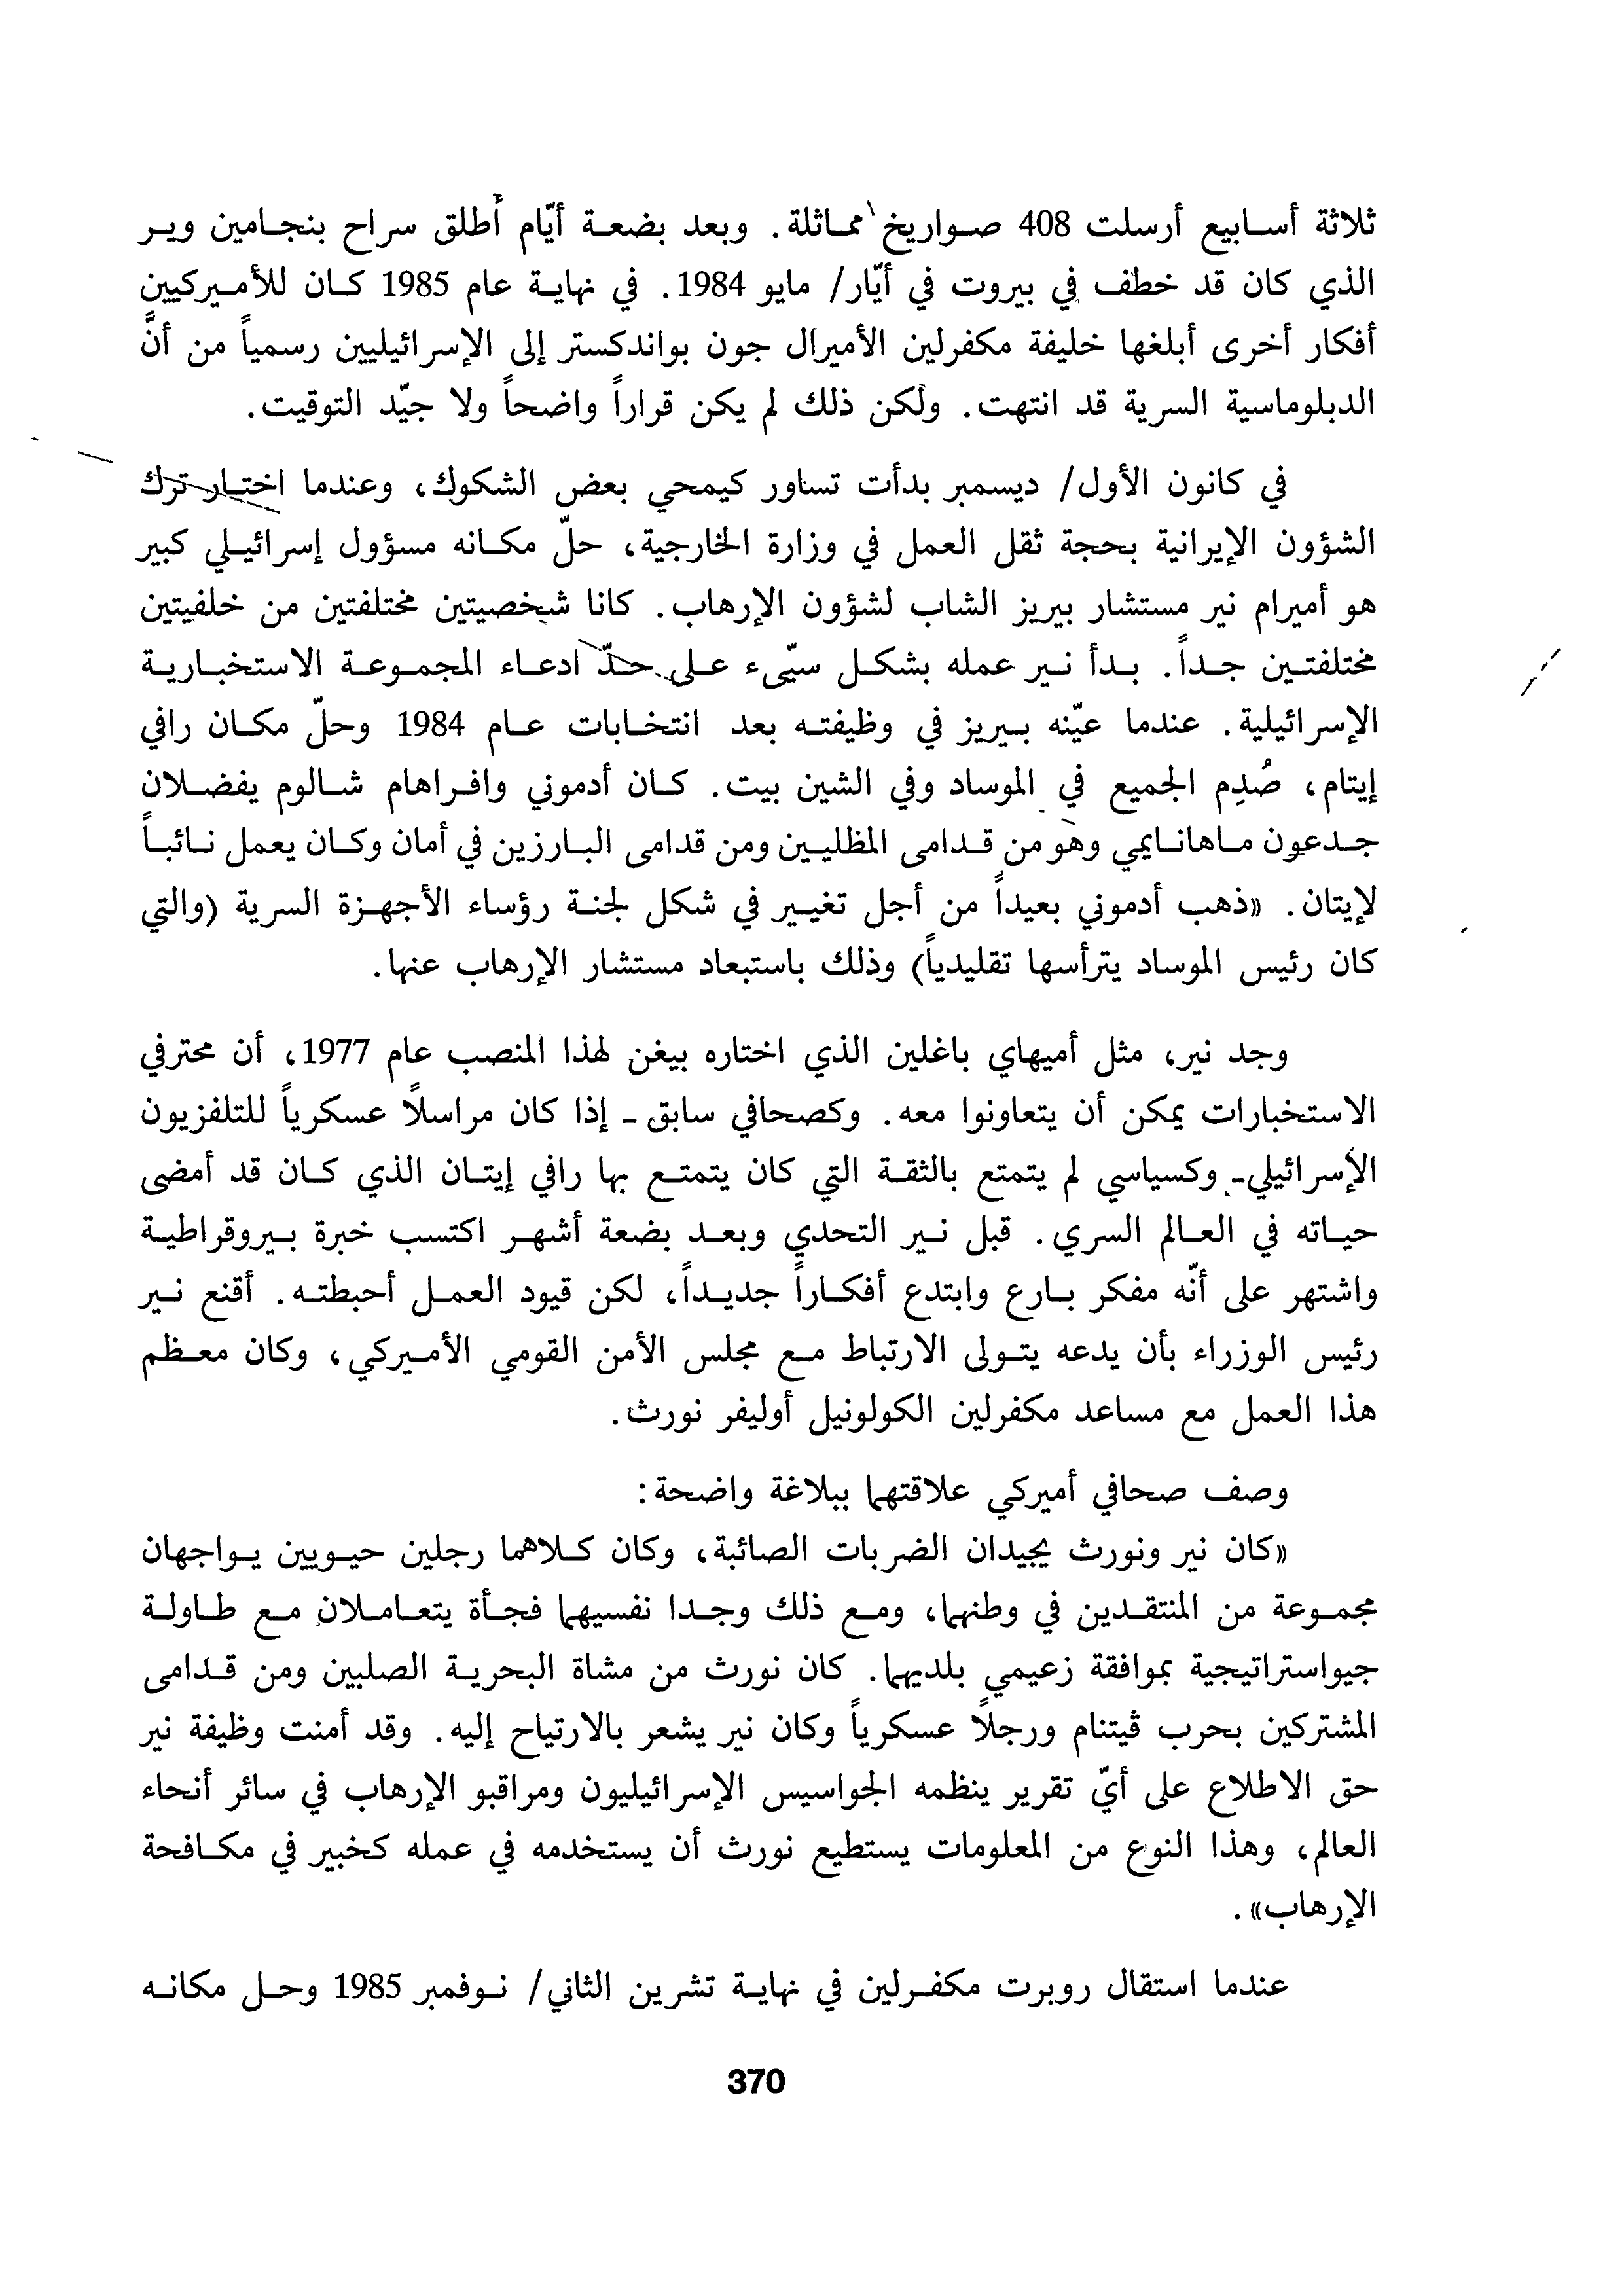 ثلاثة أسابيع أرسلت 408 صواريخ مماثلة. وبعد بضعة أيّام أُطلق سراح بنجامين وير
الذي كان قد خطف في بيروت في أيّار/ مايو 1984. في نهاية عام 1985 كان للأميركيين
أفكار أخرى أبلغها خليفة مكفرلين الأميرال جون بواندكستر إلى الإسرائيليين رسمياً من أنَّ
الدبلوماسية السرية قد انتهت. ولكن ذلك لم يكن قراراً واضحاً ولا جيّد التوقيت.
في كانون الأول/ ديسمبر بدأت تساور كيمحي بعض الشكوك، وعندما اختار ترك
الشؤون الإيرانية بحجة ثقل العمل في وزارة الخارجية، حلّ مكانه مسؤول إسرائيلي كبير
هو أميرام نير مستشار بيريز الشاب لشؤون الإرهاب. كانا شخصيتين مختلفتين من خلفيتين
مختلفتين جداً. بدأ نير عمله بشكل سيّىء على حدّ ادعاء المجموعة الاستخبارية
الإسرائيلية. عندما عيّنه بيريز في وظيفته بعد انتخابات عام 1984 وحلّ مكان رافي
إيتام، صُدِم الجميع في الموساد وفي الشين بيت. كان أدموني وافراهام شالوم يفضلان
جدعون ماهانايمي وهو من قدامى المظليين ومن قدامى البارزين في أمان وكان يعمل نائباً
لإيتان. «ذهب أدموني بعيداً من أجل تغيير في شكل لجنة رؤساء الأجهزة السرية (والتي
كان رئيس الموساد يترأسها تقليدياً) وذلك باستبعاد مستشار الإرهاب عنها.
وجد نير، مثل أميهاي باغلين الذي اختاره بيغن لهذا المنصب عام 1977، أن محترفي
الاستخبارات يمكن أن يتعاونوا معه. وكصحافي سابق ـ إذا كان مراسلاً عسكرياً للتلفزيون
الإسرائيلي ـ وكسياسي لم يتمتع بالثقة التي كان يتمتع بها رافي إيتان الذي كان قد أمضى
حياته في العالم السري. قبل نير التحدي وبعد بضعة أشهر اكتسب خبرة بيروقراطية
واشتهر على أنّه مفكر بارع وابتدع أفكاراً جديداً، لكن قيود العمل أحبطته. أقنع نير
رئيس الوزراء بأن يدعه يتولى الارتباط مع مجلس الأمن القومي الأميركي، وكان معظم
هذا العمل مع مساعد مكفرلين الكولونيل أوليفر نورث.
وصف صحافي أميركي علاقتهما ببلاغة واضحة:
«كان نير ونورث يجيدان الضربات الصائبة، وكان كلاهما رجلين حيويين يواجهان
مجموعة من المنتقدين في وطنهما، ومع ذلك وجدا نفسيهما فجأة يتعاملان مع طاولة
جيواستراتيجية بموافقة زعيمي بلديهما. كان نورث من مشاة البحرية الصلبين ومن قدامى
المشتركين بحرب ڤيتنام ورجلاً عسكرياً وكان نير يشعر بالارتياح إليه. وقد أمنت وظيفة نير
حق الاطلاع على أيّ تقرير ينظمه الجواسيس الإسرائيليون ومراقبو الإرهاب في سائر أنحاء
العالم، وهذا النوع من المعلومات يستطيع نورث أن يستخدمه في عمله كخبير في مكافحة
الإرهاب».
عندما استقال روبرت مكفرلين في نهاية تشرين الثاني/ نوفمبر 1985 وحل مكانه
370